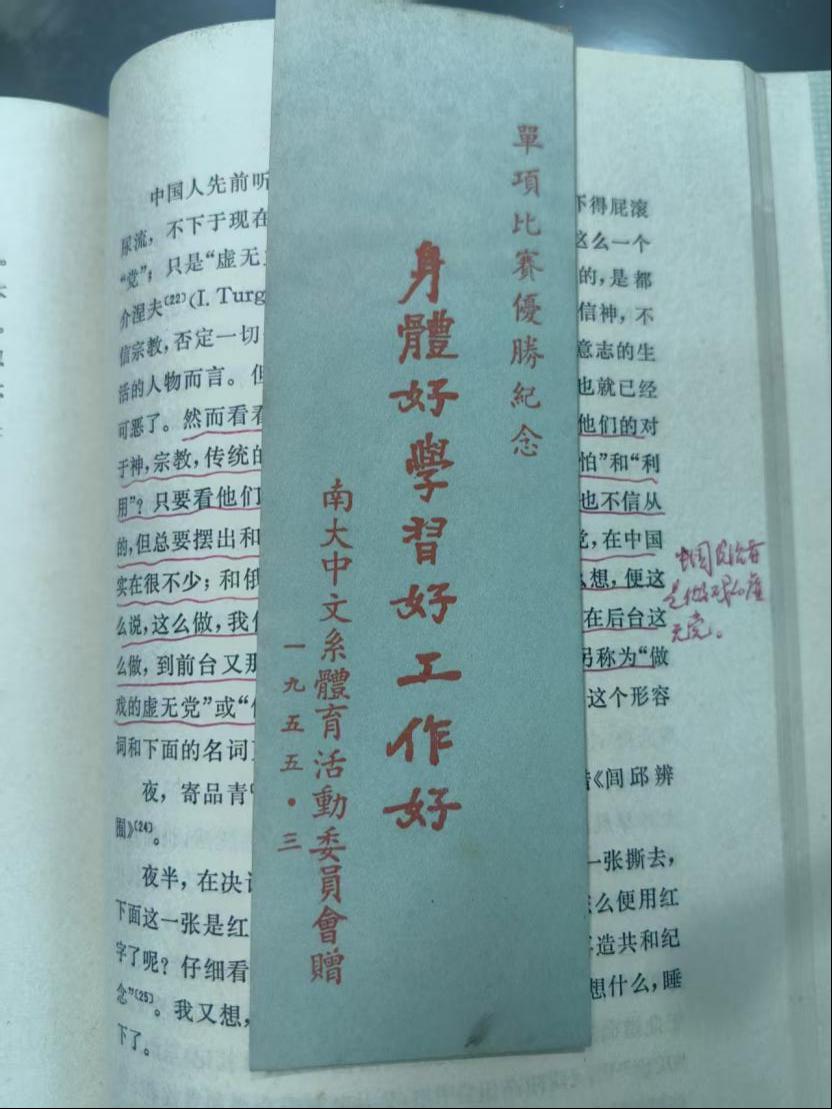 單項比賽優勝紀念
身體好學習好工作好
南大中文系體育活動委員會贈
一九五五·三
中国人先前听 得屁滚
尿流，不下于现在 这么一个
“党”；只是“虚无 的，是都
介涅夫〔22〕(I. Turg 信神，不
信宗教，否定一切 意志的生
活的人物而言。但 也就已经
可恶了。然而看看 他们的对
于神，宗教，传统的 怕”和“利
用”？只要看他们 也不信从
的，但总要摆出和 党，在中国
实在很不少；和俄 么想，便这
么说，这么做，我 在后台这
么做，到前台又那 另称为“做
戏的虚无党”或“ 这个形容
词和下面的名词
夜，寄品青 《闾邱辨
囿》〔24〕。
夜半，在决 一张撕去，
下面这一张是红 么便用红
字了呢？仔细看 造共和纪
念”〔25〕。我又想， 想什么，睡
下了。
中国
无党。